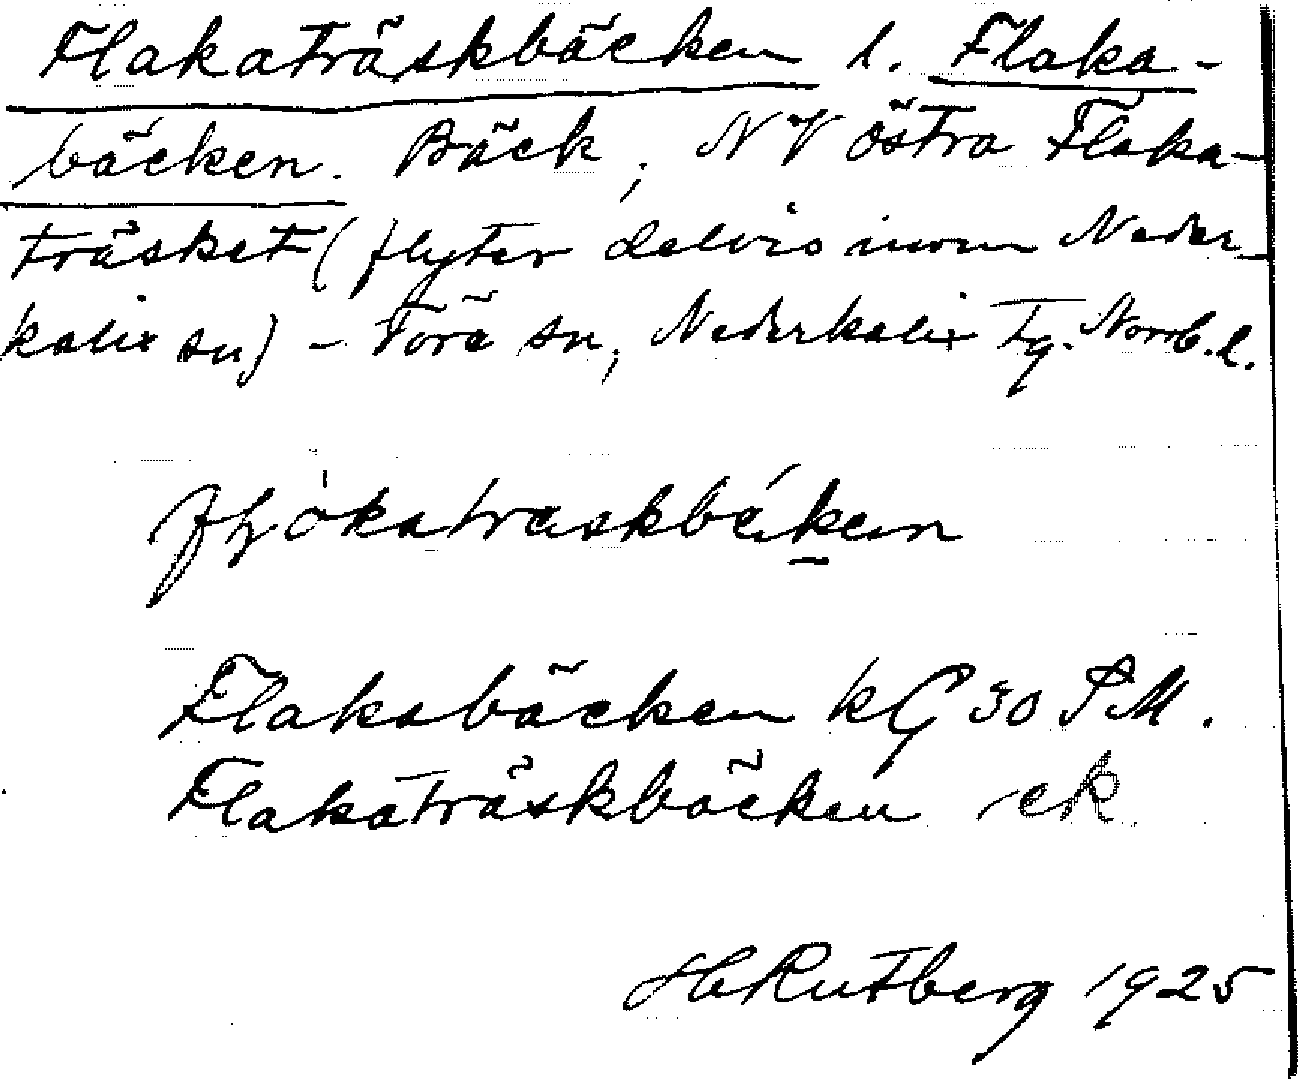 Flakaträskbäcken l. Flaka-
bäcken. Bäck, NV östra Flaka-
träsket (flyter delvis inom Neder-
kalix sn) - Töre sn, Nederkalix tg. Norrb. l.
Flakabäcken kG 30 SM.
Flakaträskbäcken ek
H Rutberg 1925